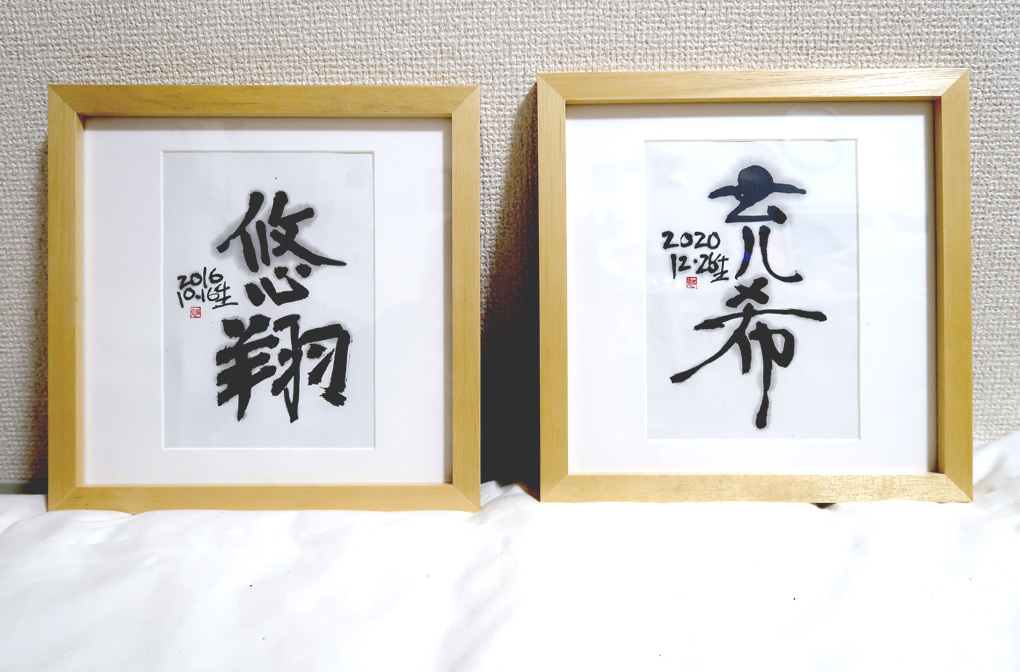 悠翔
2016
10.16生
充希
2020
12.26生